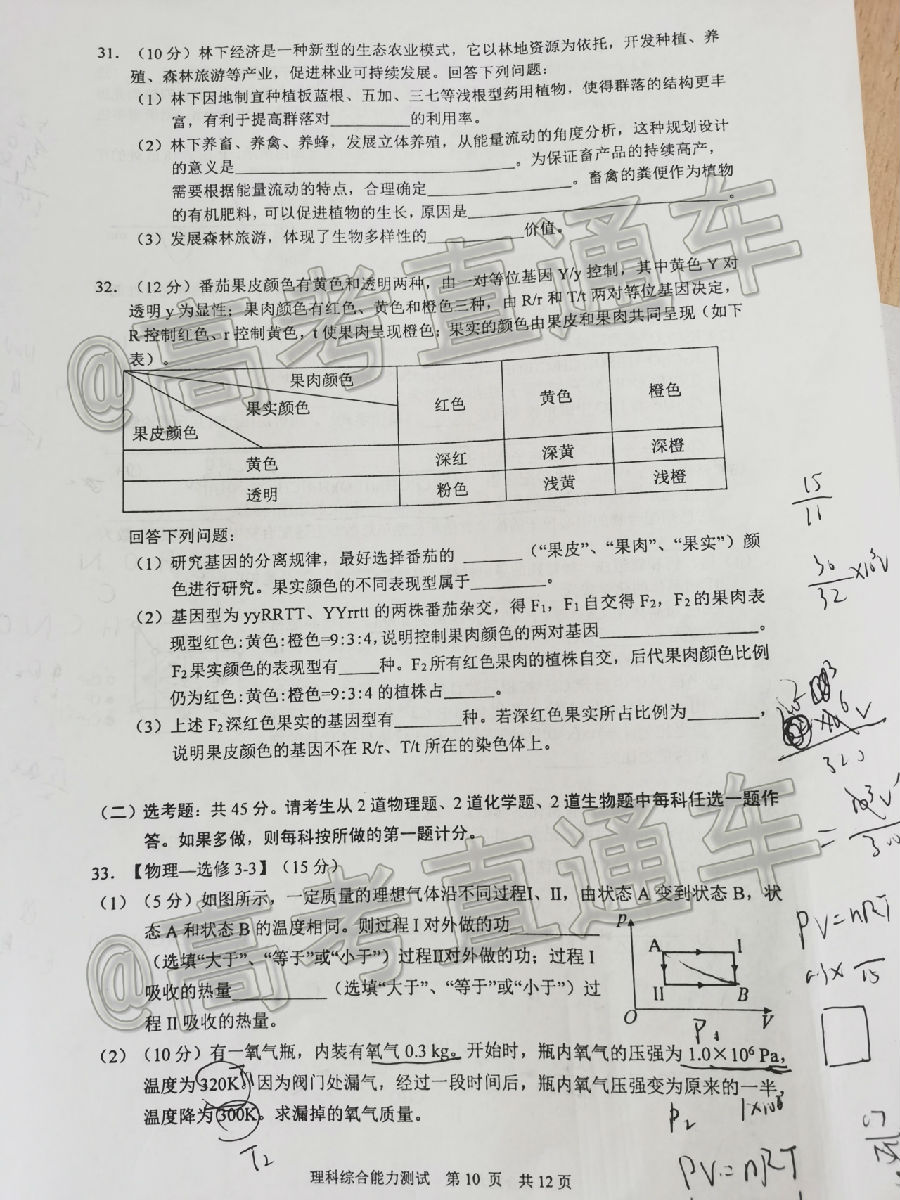 31. （10 分）林下经济是一种新型的生态农业模式，它以林地资源为依托，开发种植、养
殖、森林旅游等产业，促进林业可持续发展。回答下列问题：
（1）林下因地制宜种植板蓝根、五加、三七等浅根型药用植物，使得群落的结构更丰
富，有利于提高群落对__________的利用率。
（2）林下养畜、养禽、养蜂，发展立体养殖，从能量流动的角度分析，这种规划设计
的意义是__________。为保证畜产品的持续高产，
需要根据能量流动的特点，合理确定__________。畜禽的粪便作为植物
的有机肥料，可以促进植物的生长，原因是__________。
（3）发展森林旅游，体现了生物多样性的__________价值。
32. （12 分）番茄果皮颜色有黄色和透明两种，由一对等位基因 Y/y 控制，其中黄色 Y 对
透明 y 为显性；果肉颜色有红色、黄色和橙色三种，由 R/r 和 T/t 两对等位基因决定，
R 控制红色、r 控制黄色，t 使果肉呈现橙色；果实的颜色由果皮和果肉共同呈现（如下
表）。
果肉颜色
果实颜色
果皮颜色
红色 黄色 橙色
黄色 深红 深黄 深橙
透明 粉色 浅黄 浅橙
回答下列问题：
（1）研究基因的分离规律，最好选择番茄的______（“果皮”、“果肉”、“果实”）颜
色进行研究。果实颜色的不同表现型属于________。
（2）基因型为 yyRRTT、YYrrtt 的两株番茄杂交，得 F₁，F₁ 自交得 F₂，F₂ 的果肉表
现型红色:黄色:橙色=9:3:4，说明控制果肉颜色的两对基因__________。
F₂ 果实颜色的表现型有____种。F₂ 所有红色果肉的植株自交，后代果肉颜色比例
仍为红色:黄色:橙色=9:3:4 的植株占______。
（3）上述 F₂ 深红色果实的基因型有______种。若深红色果实所占比例为______，
说明果皮颜色的基因不在 R/r、T/t 所在的染色体上。
（二）选考题：共 45 分。请考生从 2 道物理题、2 道化学题、2 道生物题中每科任选一题作
答。如果多做，则每科按所做的第一题计分。
33. 【物理—选修 3-3】（15 分）
（1）（5 分）如图所示，一定质量的理想气体沿不同过程Ⅰ、Ⅱ，由状态 A 变到状态 B，状
态 A 和状态 B 的温度相同。则过程 Ⅰ 对外做的功__________
（选填“大于”、“等于”或“小于”）过程Ⅱ对外做的功；过程 Ⅰ
吸收的热量__________（选填“大于”、“等于”或“小于”）过
程 Ⅱ 吸收的热量。
P
A Ⅰ
Ⅱ B
O V
（2）（10 分）有一氧气瓶，内装有氧气 0.3 kg。开始时，瓶内氧气的压强为 1.0×10⁶ Pa，
温度为 320K，因为阀门处漏气，经过一段时间后，瓶内氧气压强变为原来的一半，
温度降为 300K。求漏掉的氧气质量。
理科综合能力测试 第 10 页 共 12 页
@高考直通车
@高考直通车
15
30
32
PV=nRT
P₂
T₂
PV=nRT